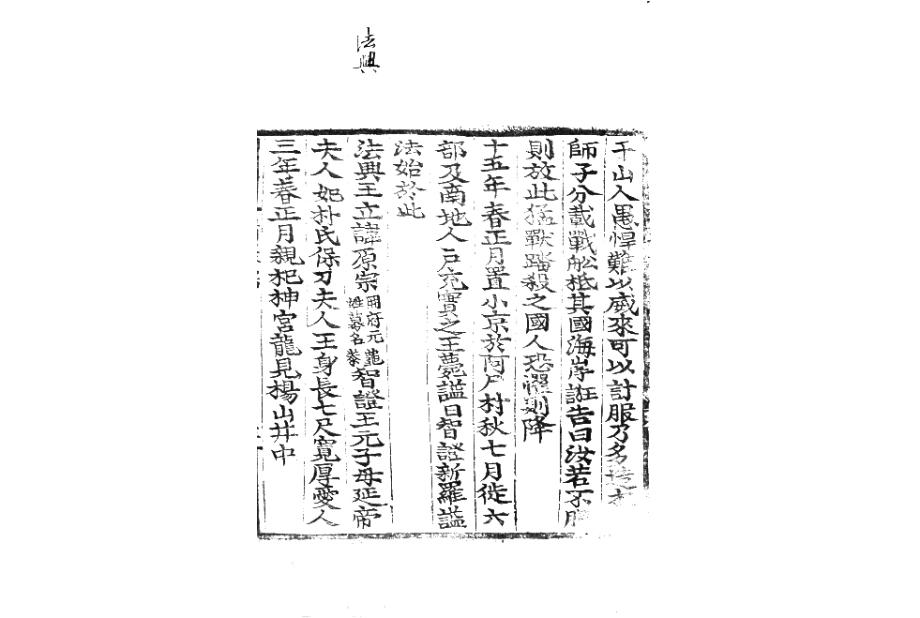 法興
于山人愚悍難以威來可以計服乃多造木
師子分載戰舡抵其國海岸誑告曰汝若不服
則放此猛獸踏殺之國人恐懼則降
十五年春正月置小京於阿尸村秋七月徙六
部及南地人戶充實之王薨謚曰智證新羅謚
法始於此
法興王立諱原宗冊府元龜姓募名秦智證王元子母延帝
夫人妃朴氏保刀夫人王身長七尺寬厚愛人
三年春正月親祀神宮龍見楊山井中